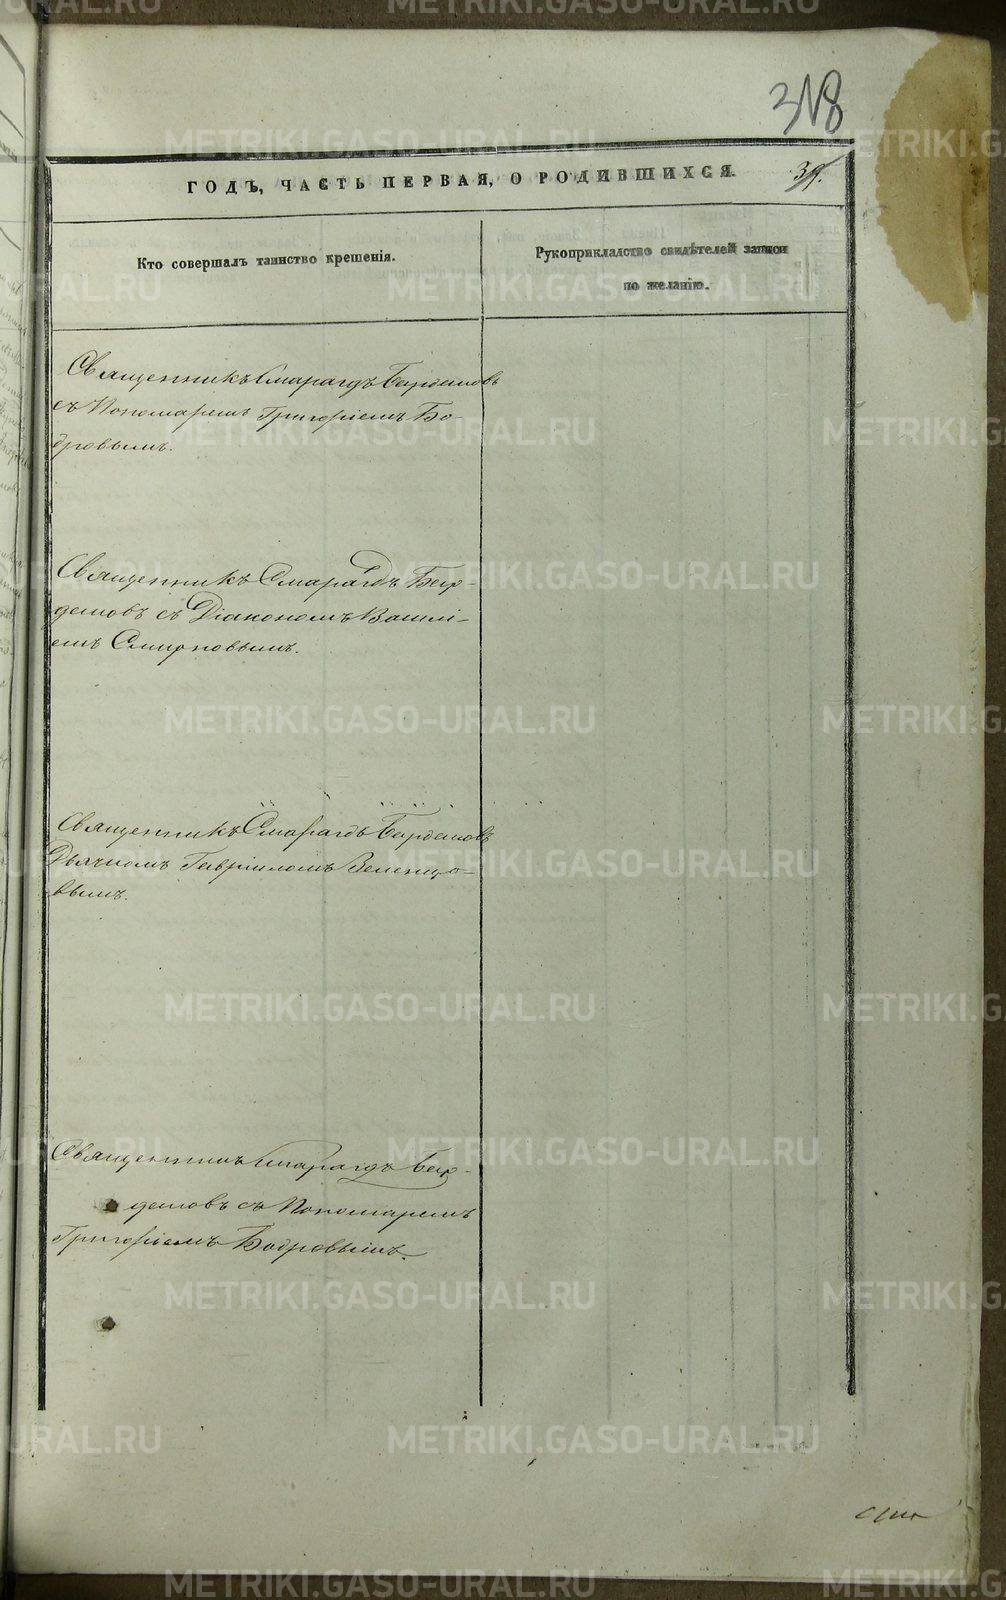 318
ГОДЪ, ЧАСТЬ ПЕРВАЯ, О РОДИВШИХСЯ.
39.
Кто совершалъ таинство крещенія.
Рукоприкладство свидѣтелей записи
по желанію.
Священникъ Смарагдъ Бирдемовъ
съ Пономаремъ Григоріемъ Бо-
дровымъ.
Священникъ Смарагдъ Бир-
демовъ съ Діакономъ Васил-
емъ Смирновымъ.
Священникъ Смарагдъ Бирдемовъ
Дьячкомъ Гавріиломъ Зеленцо-
вымъ.
Священникъ Смарагдъ Бир-
демовъ съ Пономаремъ
Григоріемъ Бодровымъ.
METRIKI.GASO-URAL.RU